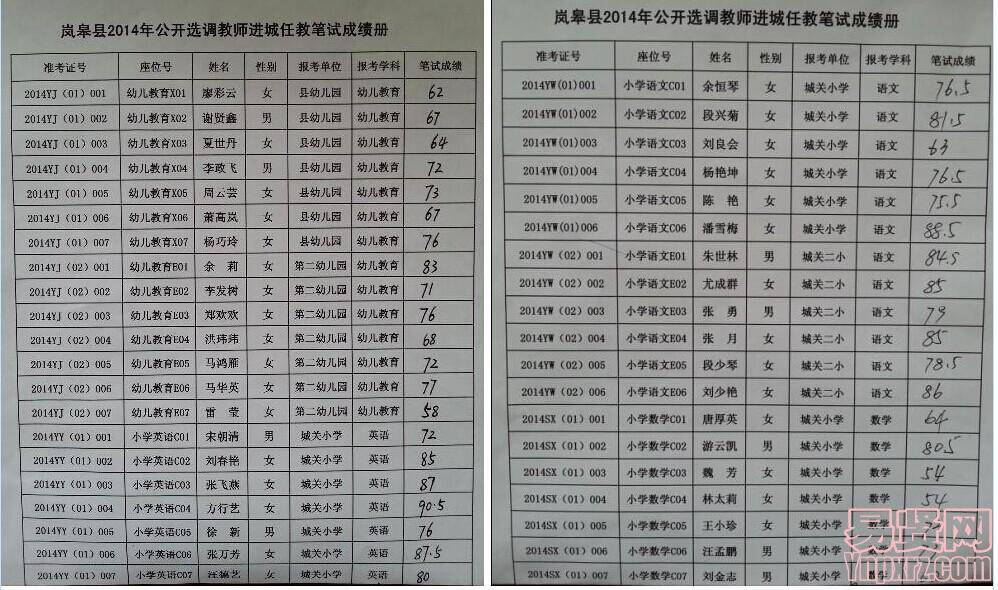 岚皋县2014年公开选调教师进城任教笔试成绩册
准考证号 座位号 姓名 性别 报考单位 报考学科 笔试成绩
2014YJ（01）001 幼儿教育X01 廖彩云 女 县幼儿园 幼儿教育 62
2014YJ（01）002 幼儿教育X02 谢贤鑫 男 县幼儿园 幼儿教育 67
2014YJ（01）003 幼儿教育X03 夏世丹 女 县幼儿园 幼儿教育 64
2014YJ（01）004 幼儿教育X04 李政飞 男 县幼儿园 幼儿教育 72
2014YJ（01）005 幼儿教育X05 周云芸 女 县幼儿园 幼儿教育 73
2014YJ（01）006 幼儿教育X06 萧高岚 女 县幼儿园 幼儿教育 67
2014YJ（01）007 幼儿教育X07 杨巧玲 女 县幼儿园 幼儿教育 76
2014YJ（02）001 幼儿教育E01 余 莉 女 第二幼儿园 幼儿教育 83
2014YJ（02）002 幼儿教育E02 李发树 女 第二幼儿园 幼儿教育 71
2014YJ（02）003 幼儿教育E03 郑欢欢 女 第二幼儿园 幼儿教育 76
2014YJ（02）004 幼儿教育E04 洪玮玮 女 第二幼儿园 幼儿教育 68
2014YJ（02）005 幼儿教育E05 马鸿雁 女 第二幼儿园 幼儿教育 72
2014YJ（02）006 幼儿教育E06 马华英 女 第二幼儿园 幼儿教育 77
2014YJ（02）007 幼儿教育E07 雷 莹 女 第二幼儿园 幼儿教育 58
2014YY（01）001 小学英语C01 宋朝清 男 城关小学 英语 72
2014YY（01）002 小学英语C02 刘春艳 女 城关小学 英语 85
2014YY（01）003 小学英语C03 张飞燕 女 城关小学 英语 87
2014YY（01）004 小学英语C04 方行艺 女 城关小学 英语 90.5
2014YY（01）005 小学英语C05 徐 新 男 城关小学 英语 76
2014YY（01）006 小学英语C06 张万芳 女 城关小学 英语 87.5
2014YY（01）007 小学英语C07 汪德艺 女 城关小学 英语 80
岚皋县2014年公开选调教师进城任教笔试成绩册
准考证号 座位号 姓名 性别 报考单位 报考学科 笔试成绩
2014YW(01)001 小学语文C01 余恒琴 女 城关小学 语文 76.5
2014YW(01)002 小学语文C02 段兴菊 女 城关小学 语文 81.5
2014YW(01)003 小学语文C03 刘良会 女 城关小学 语文 63
2014YW(01)004 小学语文C04 杨艳坤 女 城关小学 语文 76.5
2014YW(01)005 小学语文C05 陈 艳 女 城关小学 语文 75.5
2014YW(01)006 小学语文C06 潘雪梅 女 城关小学 语文 88.5
2014YW（02）001 小学语文E01 朱世林 男 城关二小 语文 84.5
2014YW（02）002 小学语文E02 尤成群 女 城关二小 语文 85
2014YW（02）003 小学语文E03 张 勇 男 城关二小 语文 79
2014YW（02）004 小学语文E04 张 月 女 城关二小 语文 85
2014YW（02）005 小学语文E05 段少琴 女 城关二小 语文 78.5
2014YW（02）006 小学语文E06 刘少艳 女 城关二小 语文 86
2014SX（01）001 小学数学C01 唐厚英 女 城关小学 数学 64
2014SX（01）002 小学数学C02 游云凯 男 城关小学 数学 80.5
2014SX（01）003 小学数学C03 魏 芳 女 城关小学 数学 54
2014SX（01）004 小学数学C04 林太莉 女 城关小学 数学 54
2014SX（01）005 小学数学C05 王小珍 女 城关小学 数学
2014SX（01）006 小学数学C06 汪孟鹏 男 城关小学
2014SX（01）007 小学数学C07 刘金志 男 城关小学
易贤网
Ynpxrz.com